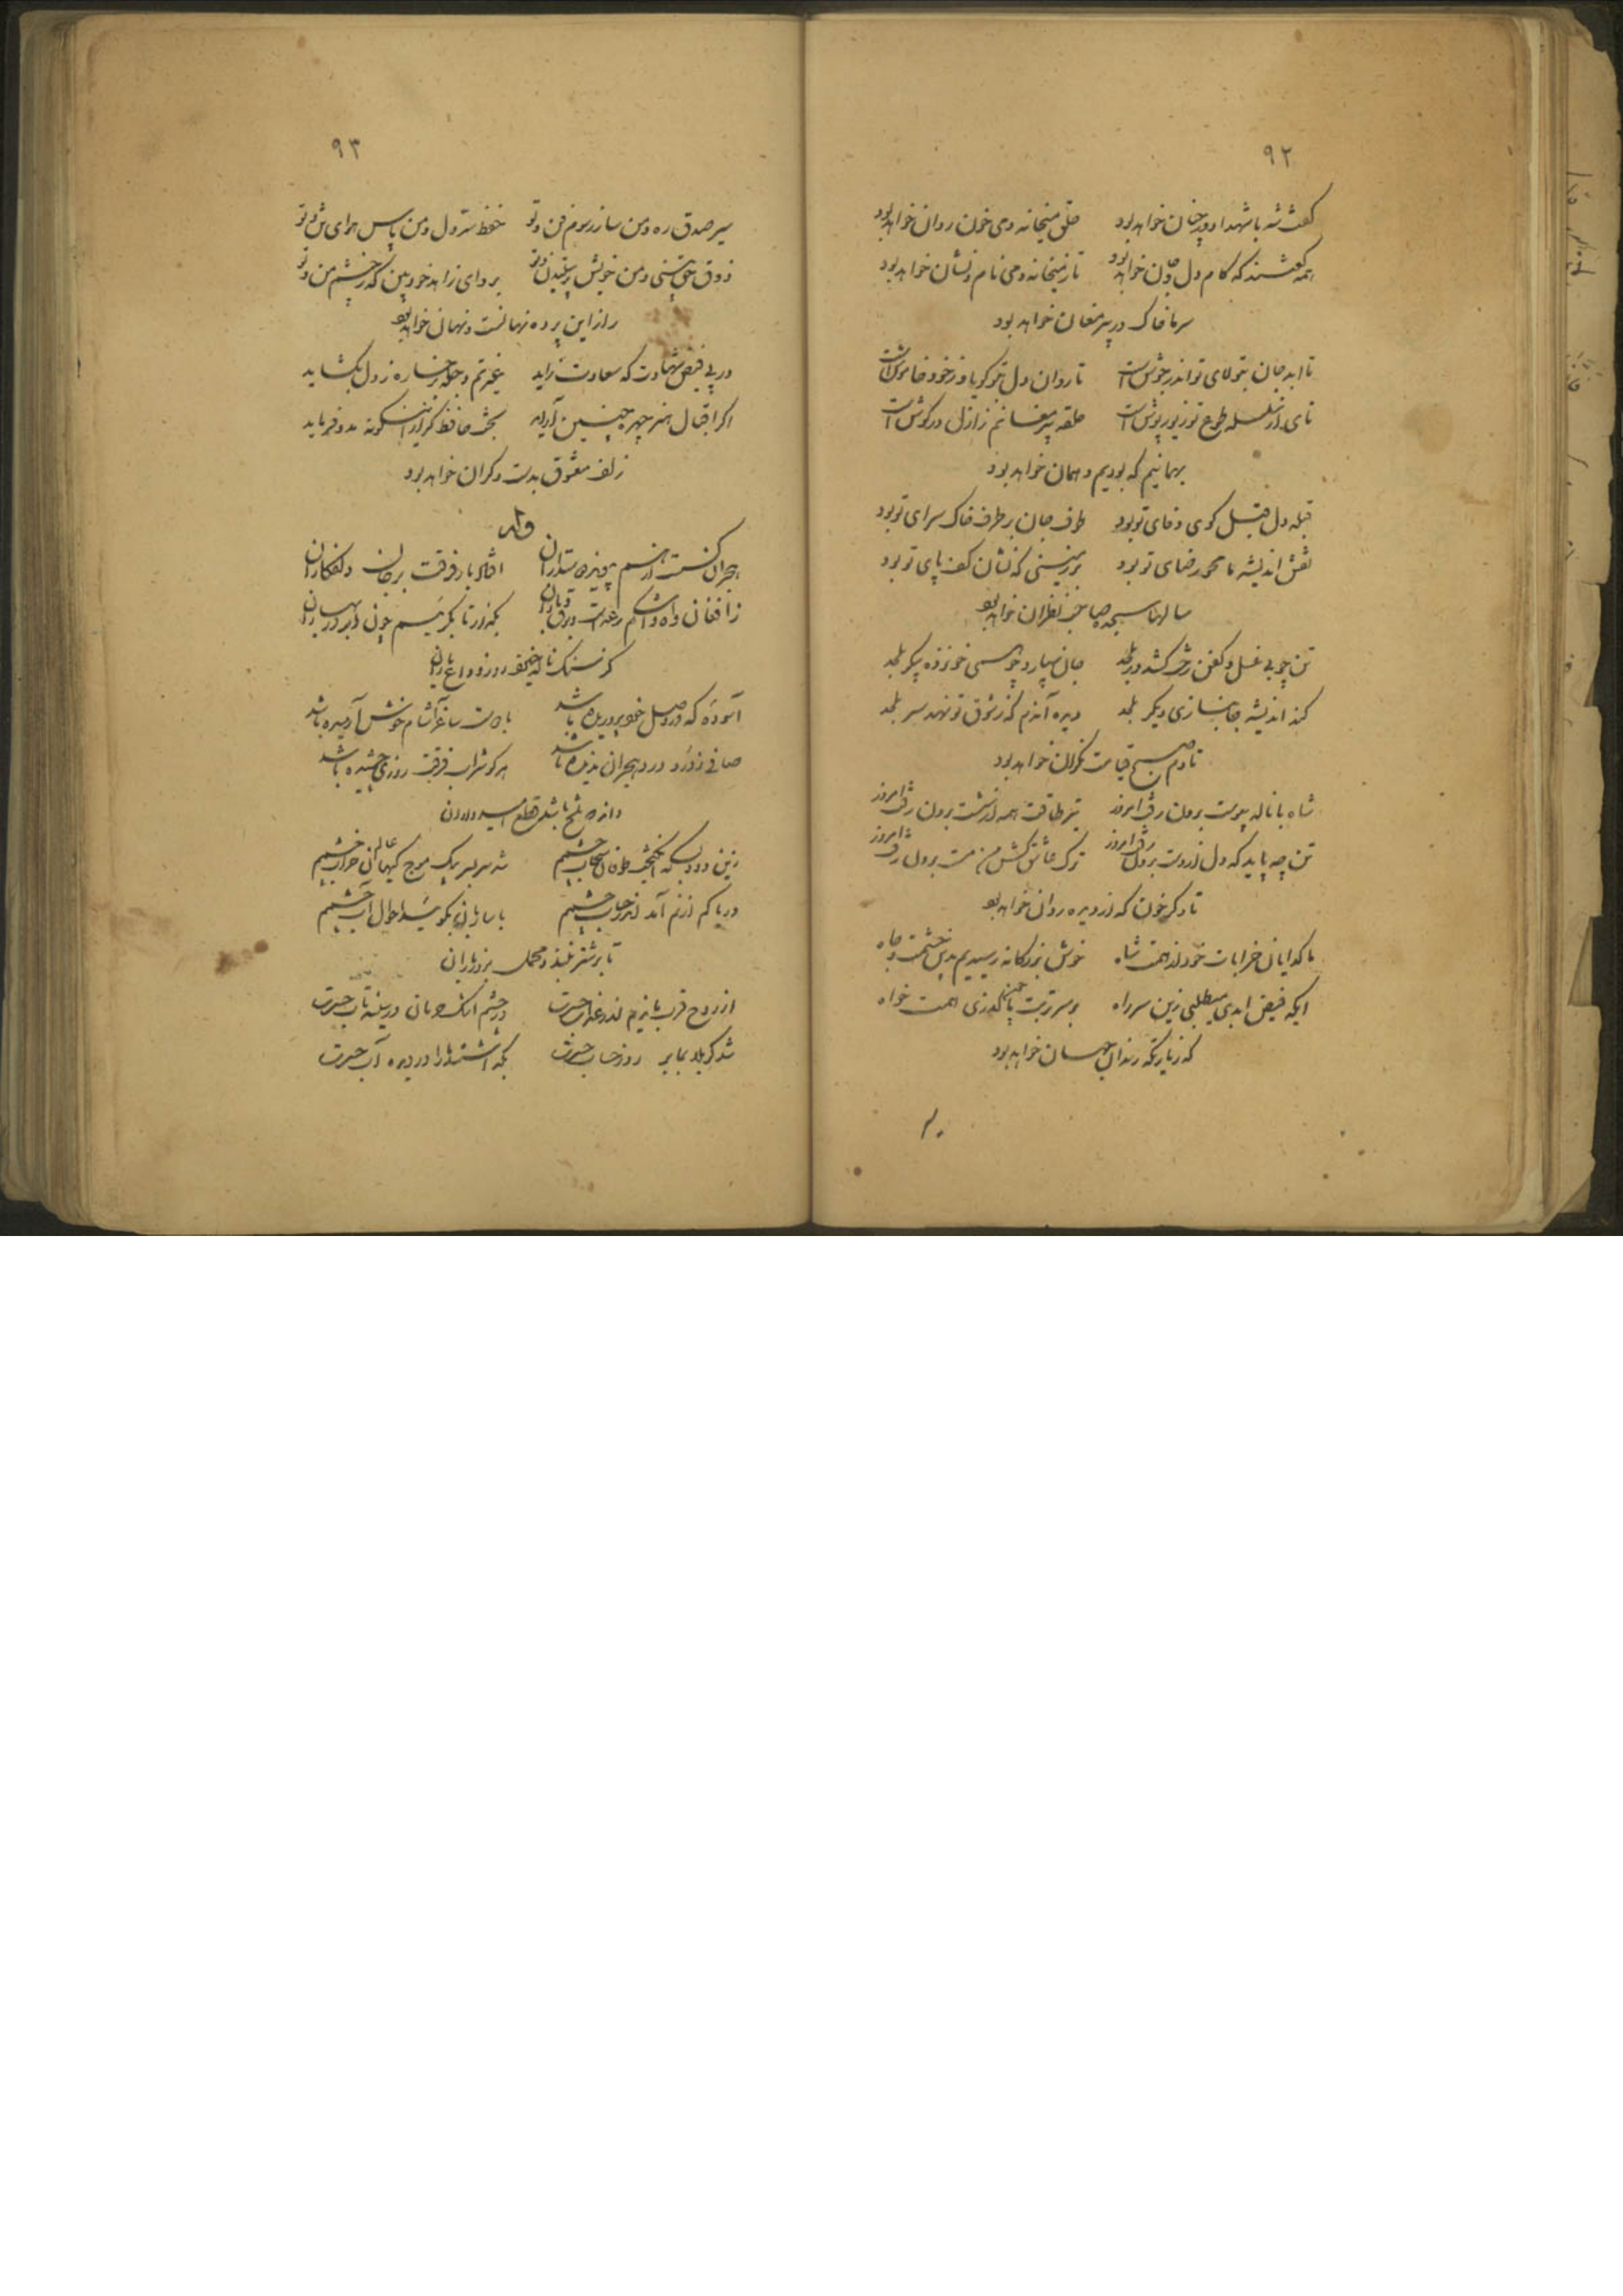 ۹۲
گفت شه با شهدا دور جنان خواهد بود خلق میخانه و می خون روان خواهد بود
همه گفتند که کام دل و جان خواهد بود تا ز میخانه و می نام و نشان خواهد بود
سر ما خاک در پیر مغان خواهد بود
تا ابد جان بتولای تو اندر جوش است تا روان دل بتو گویا و ز خود خاموش است
تای از سلسله طوع تو زیور پوش است حلقه پیر مغانم ز ازل در گوش است
بر همانیم که بودیم و همان خواهد بود
قبله دل مقبل کوی وفای تو بود طرف جان بر طرف خاک سرای تو بود
نقش اندیشه ما محو رضای تو بود بر زمینی که نشان کف پای تو بود
سالها سجده صاحب نظران خواهد بود
تن چو بی غسل و کفن رخت کشد در بلحد جان سپارد چو حسین خونزده پیکر بلحد
کند اندیشه جانبازی دیگر بلحد دیده آندم که ز شوق تو نهد سر بلحد
تا دم صبح قیامت نگران خواهد بود
شاه با ناله پیوست برون رفت امروز تیر طاقت همه از شست برون رفت امروز
تن چه پاید که دل از دست برون رفت امروز ترک عاشق کش من مست برون رفت امروز
تا دگر خون که از دیده روان خواهد بود
ما گدایان خرابات خود از همت شاه خوش بزرگانه رسیدیم بدین حشمت و جاه
ایکه فیض ابدی میطلبی زین سر راه بر سر تربت ما چون گذری همت خواه
که زیارتگه رندان جهان خواهد بود
۹۳
سیر صدق ره و من ساز رسوم فن و تو حفظ سر دل و من پاس هوای تن و تو
ذوق حق بینی و من خویش پسندیدن و تو برو ای زاهد خودبین که ز چشم من و تو
راز این پرده نهانست و نهان خواهد بود
در پی فیض شهادت که سعادت زاید غیرتم وجله رخساره ز دل بگشاید
اگر اقبال هنر چهر چنین آراید بخت حافظ گر ازینگونه مدد فرماید
زلف معشوق بدست دگران خواهد بود
وله
هجران گسست از هم پیوند دوستداران افتاد بار فرقت بر جان دلفکاران
ز افغان و آه و اشکم رعد است و برق و باران بگذار تا بگریم چون ابر در بهاران
کز سنگ ناله خیزد روز وداع یاران
آسوده که در وصل خو پروریده باشد با دست ساغر آشام خوش آرمیده باشد
صافی ز درد درد هجران ندیده باشد هر کو شراب فرقت روزی چشیده باشد
داند که تلخ باشد قطع امیدواران
زین رود بسکه انگیخت طوفان سحاب چشمم شد سر بسر بیک موج گیهان خراب چشمم
دریا کم از نم آمد اندر حساب چشمم با ساربان بگوئید احوال آب چشمم
تا بر شتر نبندد محمل بروز باران
از روح قرب ماندیم اندر عذاب حسرت در چشم اشک حرمان در سینه تاب حسرت
شد کربلا برابر روز حساب حسرت بگذاشتند ما را در دیده آب حسرت